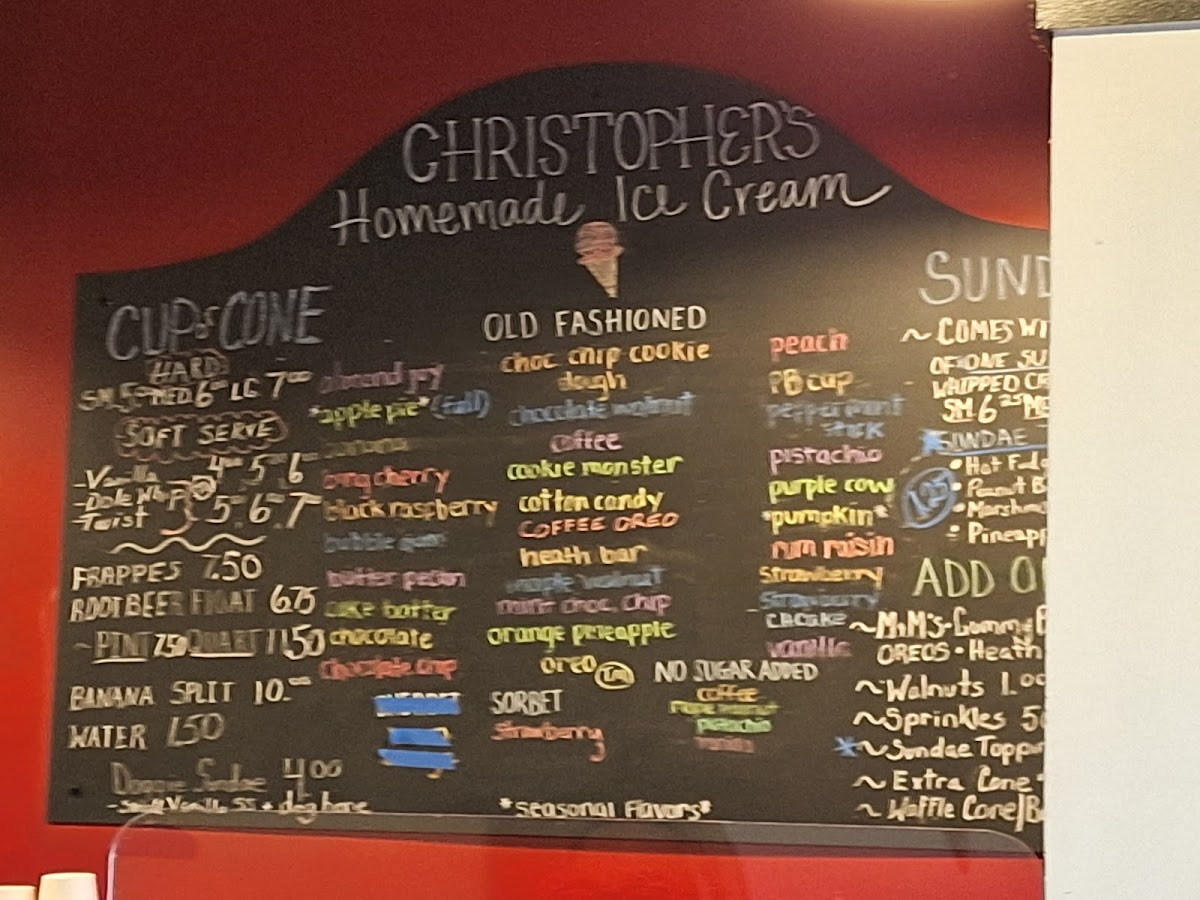 CHRISTOPHER'S
Homemade Ice Cream
CUP or CONE
HARD
SM. 5⁰⁰ MED. 6⁰⁰ LG 7⁰⁰
SOFT SERVE
-Vanilla
-Dole Whip
-Twist
4⁰⁰ 5 6
5 6 7
FRAPPES 7.50
ROOT BEER FLOAT 6.75
~ PINT 7.50 QUART 11.50
BANANA SPLIT 10.⁰⁰
WATER 1.50
Doggie Sundae 4.00
-Small Vanilla SS + dog bone
almond joy
*apple pie* (fall)
banana
bing cherry
black raspberry
bubble gum
butter pecan
cake batter
chocolate
chocolate chip
OLD FASHIONED
choc chip cookie
dough
chocolate walnut
coffee
cookie monster
cotton candy
COFFEE OREO
heath bar
maple walnut
mint choc. chip
orange pineapple
oreo
SORBET
Strawberry
peach
PB cup
peppermint
stick
pistachio
purple cow
*pumpkin*
rum raisin
Strawberry
Strawberry
C.CAKE
vanilla
NO SUGAR ADDED
coffee
maple walnut
pistachio
*Seasonal Flavors*
SUND
~ COMES WI
OF ONE SU
WHIPPED CR
SM. 6²⁵ ME
*SUNDAE
• Hot Fudg
• Peanut B
• Marshma
• Pineapp
ADD O
~M&M's·Gummy B
OREOS · Heath
~Walnuts 1.00
~Sprinkles 5
*~Sundae Toppin
~ Extra Cone
~ Waffle Cone/B